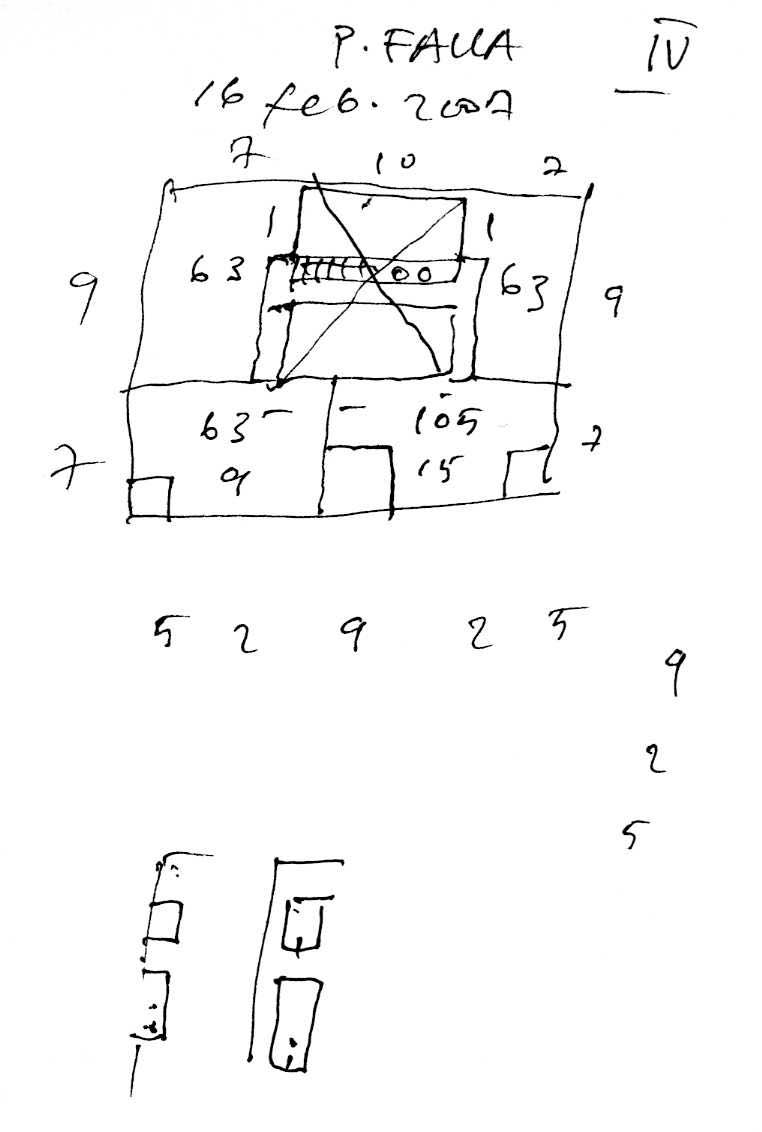 P. FALLA IV
16 feb. 2007
7 10 2
1 1
9 63 63 9
63 - - 105
7 9 15 7
5 2 9 2 5
9
2
5